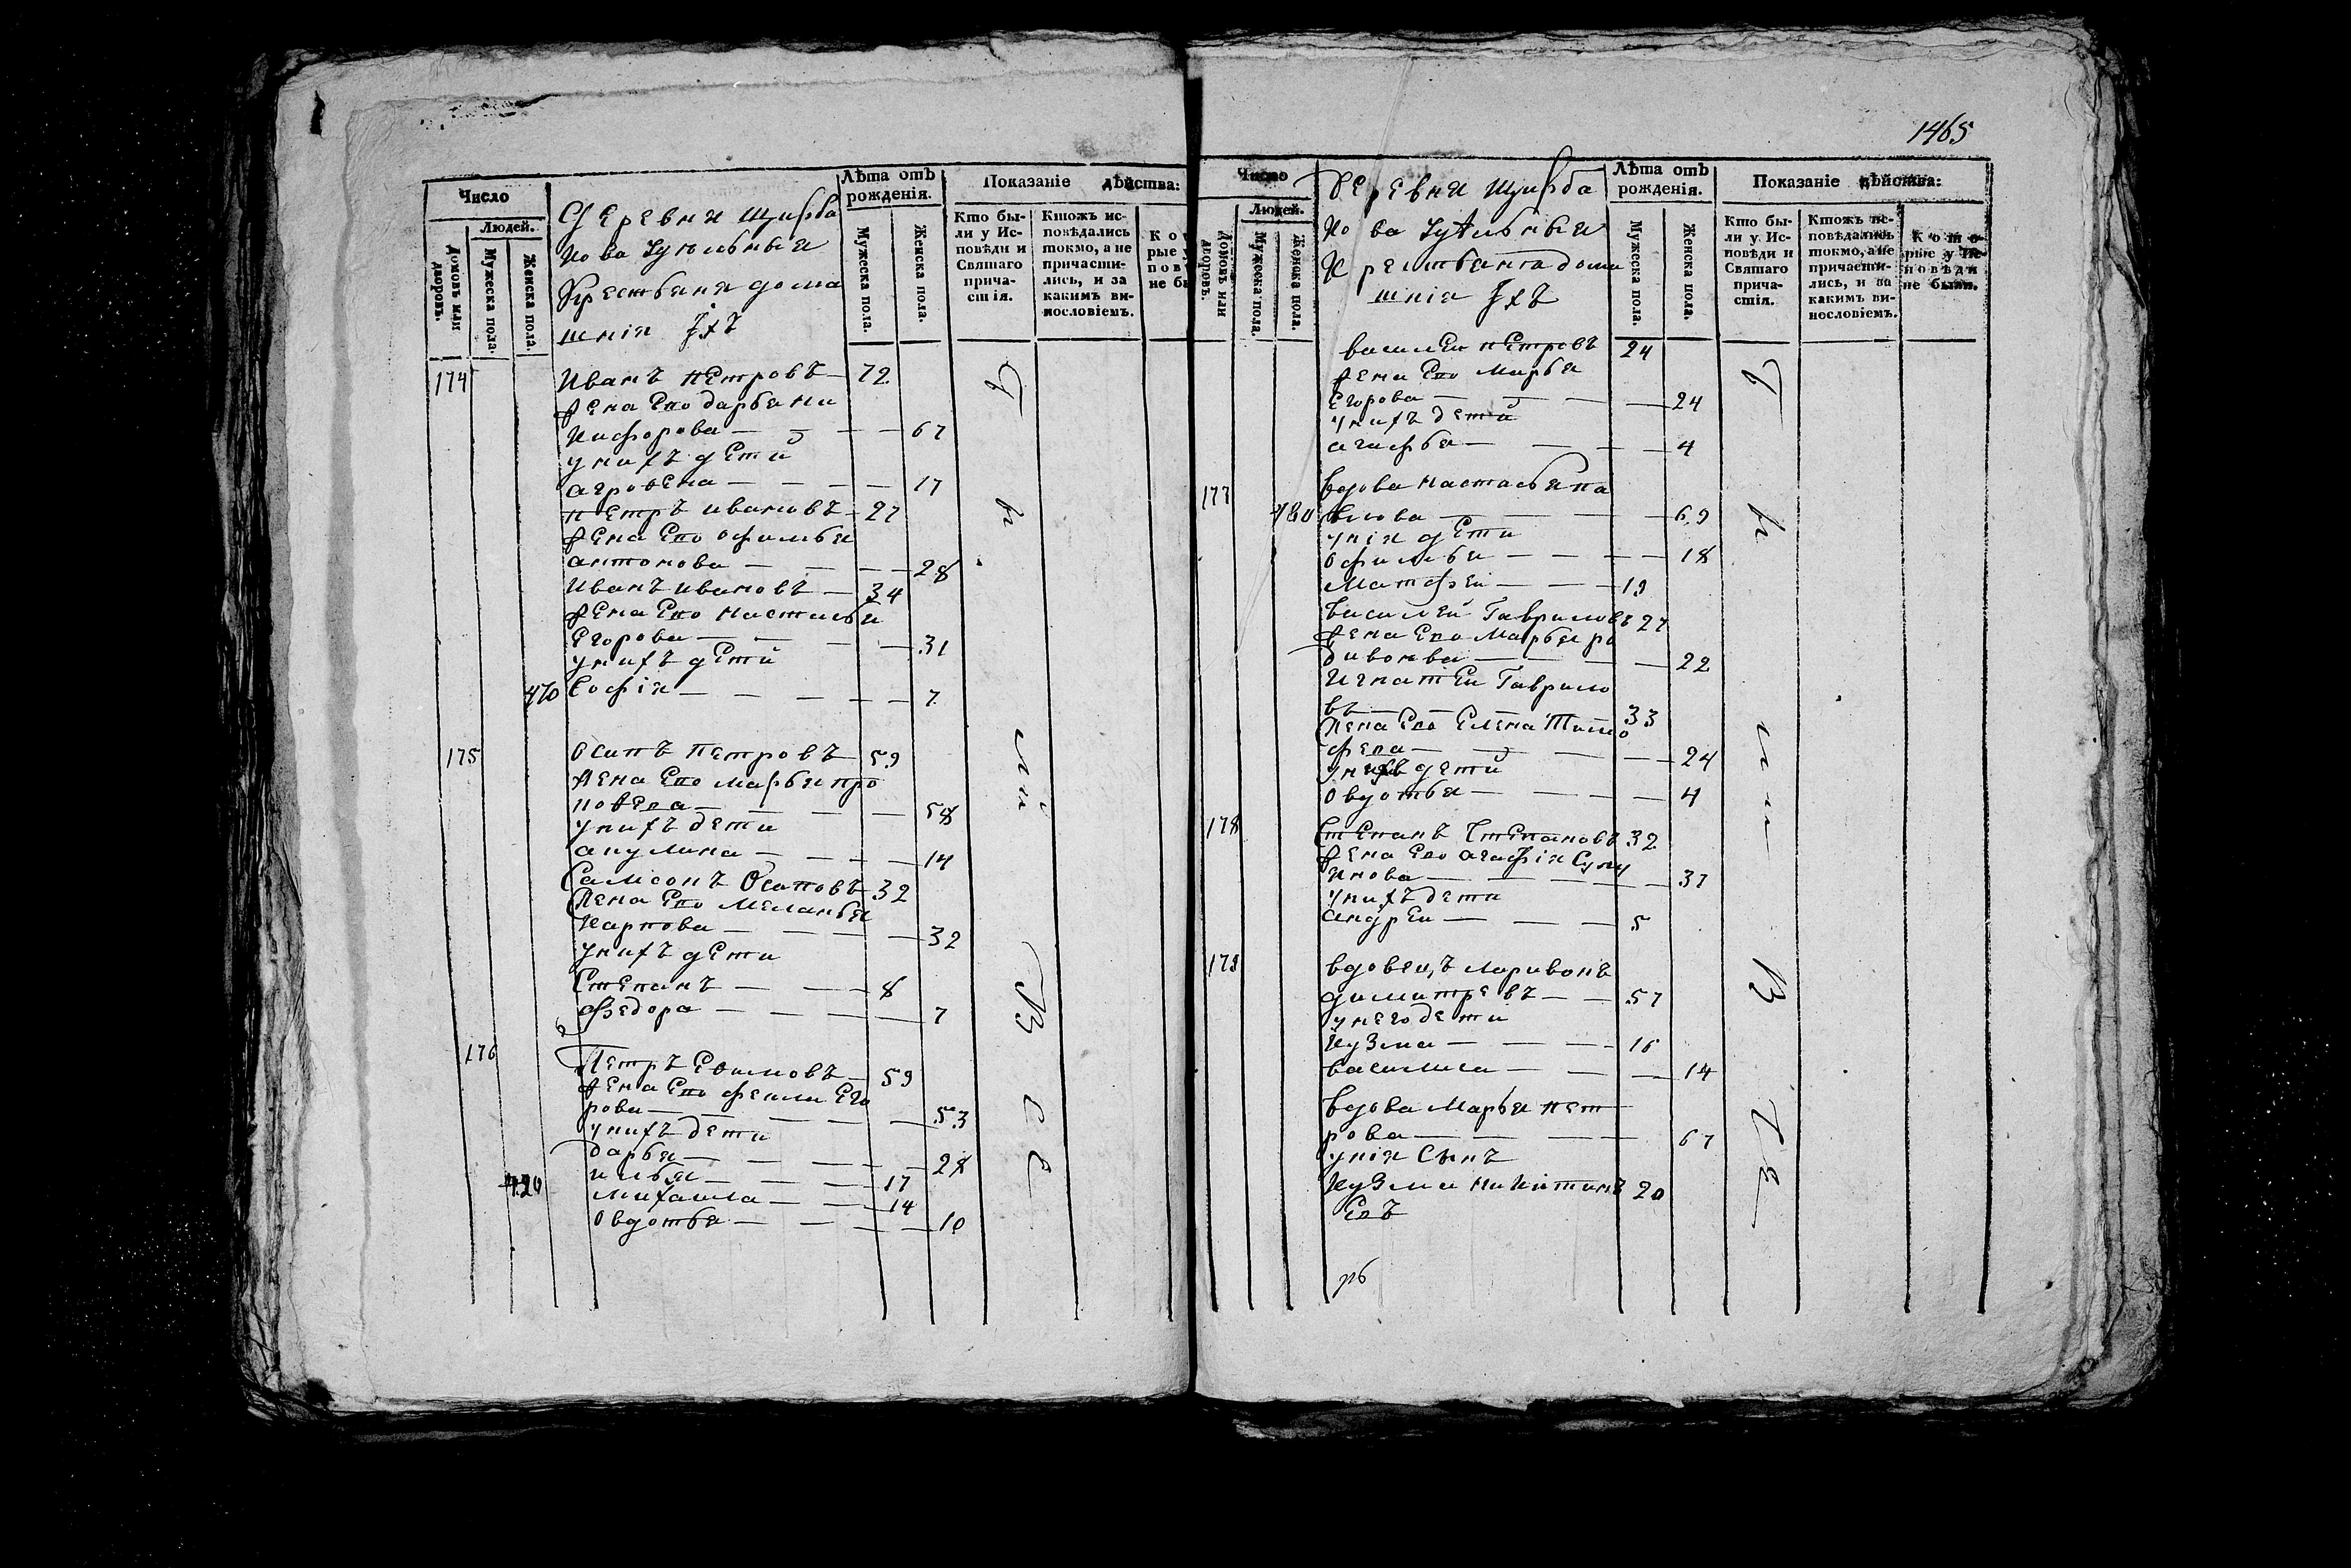 1465
Число
Людей.
Домовъ или дворовъ.
Мужеска пола.
Женска пола.
Деревни Щирба
кова
Крестьяня дома
шнія ихъ
Лѣта отъ рожденія.
Мужеска пола.
Женска пола.
Показаніе дѣйства:
Кто бы-
ли у Ис-
повѣди и
Святаго
прича-
стія.
Ктожъ ис-
повѣдались
токмо, а не
причасти-
лись, и за
какимъ ви-
нословіемъ.
174 Иванъ Петровъ — 72
жена Ево дарья ни
кифорова — 67
у нихъ дети
агрофена — 17
Петръ ивановъ — 27
жена Ево офимья
антонова — 28
Иванъ ивановъ — 34
жена Ево настасья
Егорова — 31
у нихъ дети
470 Софія — 7
175 Осипъ Петровъ — 59
жена Ево марья про
кофева — 58
у нихъ дети
акулина — 14
Самсонъ Осиповъ 32
жена Ево Меланья
Карпова — 32
у нихъ дети
Степанъ — 8
федора — 7
176 Петръ Ефимовъ — 59
жена Ево фекла Его
рова — 53
у нихъ дети
дарья — 28
илья — 17
михаила — 14
Овдотья — 10
Число
Людей.
Домовъ или дворовъ.
Мужеска пола.
Женска пола.
Деревни Щирба
кова
Крестьяня дома
шнія ихъ
Лѣта отъ рожденія.
Мужеска пола.
Женска пола.
Показаніе дѣйства:
Кто бы-
ли у Ис-
повѣди и
Святаго
прича-
стія.
Ктожъ ис-
повѣдались
токмо, а не
причасти-
лись, и за
какимъ ви-
нословіемъ.
Кото-
рые у Ис-
повѣди
не были.
василеи Петровъ 24
жена Ево Марья
Егорова — 24
у нихъ дети
агафья — 4
177 вдова настасья па
480 влова — 69
у нія дети
Офимья — 18
Матфеи — 19
василей Гавриловъ 27
жена Ево Марья ро
дивонва — 22
Игнатеи Гаврило
въ — 33
жена Ево Елена Тимо
фева — 24
у нихъ дети
Овдотья — 4
178 Степанъ Степановъ 32
жена Ево агафія
— 37
у нихъ дети
андреи — 5
179 вдовецъ ларивонъ
димитревъ — 57
у него дети
кузма — 16
василиса — 14
вдова Марья пет
рова — 67
у нія Сынъ
кузма никитинъ 20